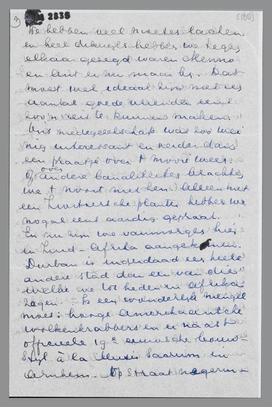 3
2836
We hebben veel moeten lachen
en heel dikwijls hebben we tegen
elkaar gezegd waren Menno
en Ant er nu maar bij. Dat
moet wel ideaal zijn met een
aantal goede vrienden eens
zoo'n reis te kunnen maken.
Ons medegezelschap was
interessant en verder dan
een praatje over 't mooie weer
of andere banaliteiten brachten
we 't nooit met hen. Alleen met
een planter hebben we
nogal eens aardig gepraat.
En nu zijn we vanmorgen hier
in Zuid-Afrika aangekomen.
Durban is inderdaad een heele
andere stad dan een van die
welke we tot heden in Afrika
zagen. Is een wonderlijk mengel
moes: hooge Amerikaansche
wolkenkrabbers en er naast
officieele 19e eeuwsche bouw-
stijl à la Musis Sacrum in
Arnhem. Op straat negerin-